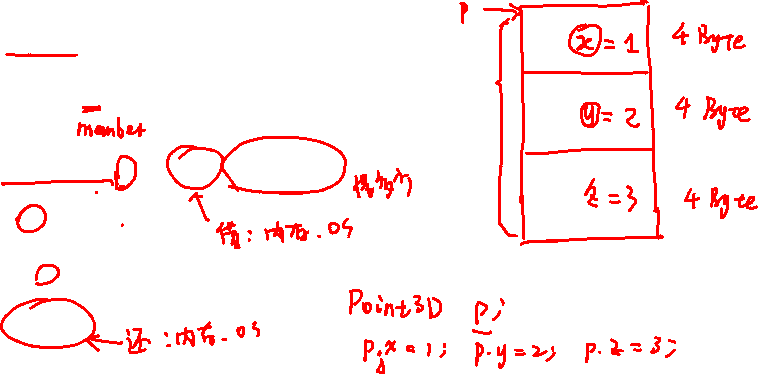 P
x = 1 4 Byte
y = 2 4 Byte
z = 3 4 Byte
member
借: 内存. OS
还: 内存. OS
Point3D p;
p.x = 1; p.y = 2; p.z = 3;